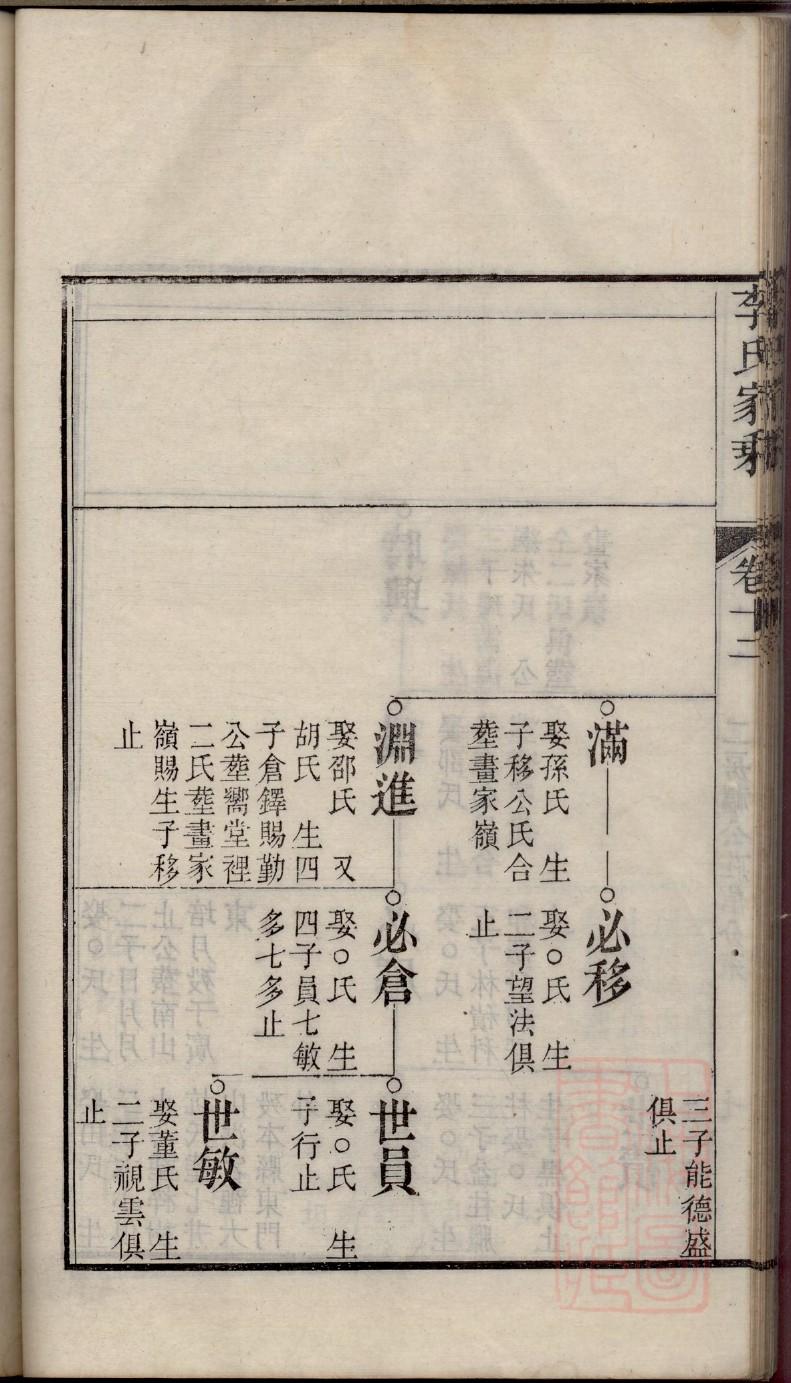 李氏家乘
卷十二
三子能德盛
俱止
滿
娶孫氏 生
子移公氏合
塟畫家嶺
必移
娶○氏 生
二子望法俱
止
淵進
娶邵氏 又
胡氏 生四
子倉鐸賜勤
公塟嚮堂裡
二氏塟畫家
嶺賜生子移
止
必倉
娶○氏 生
四子員七敏
多七多止
世員
娶○氏 生
子行止
世敏
娶董氏 生
二子視雲俱
止